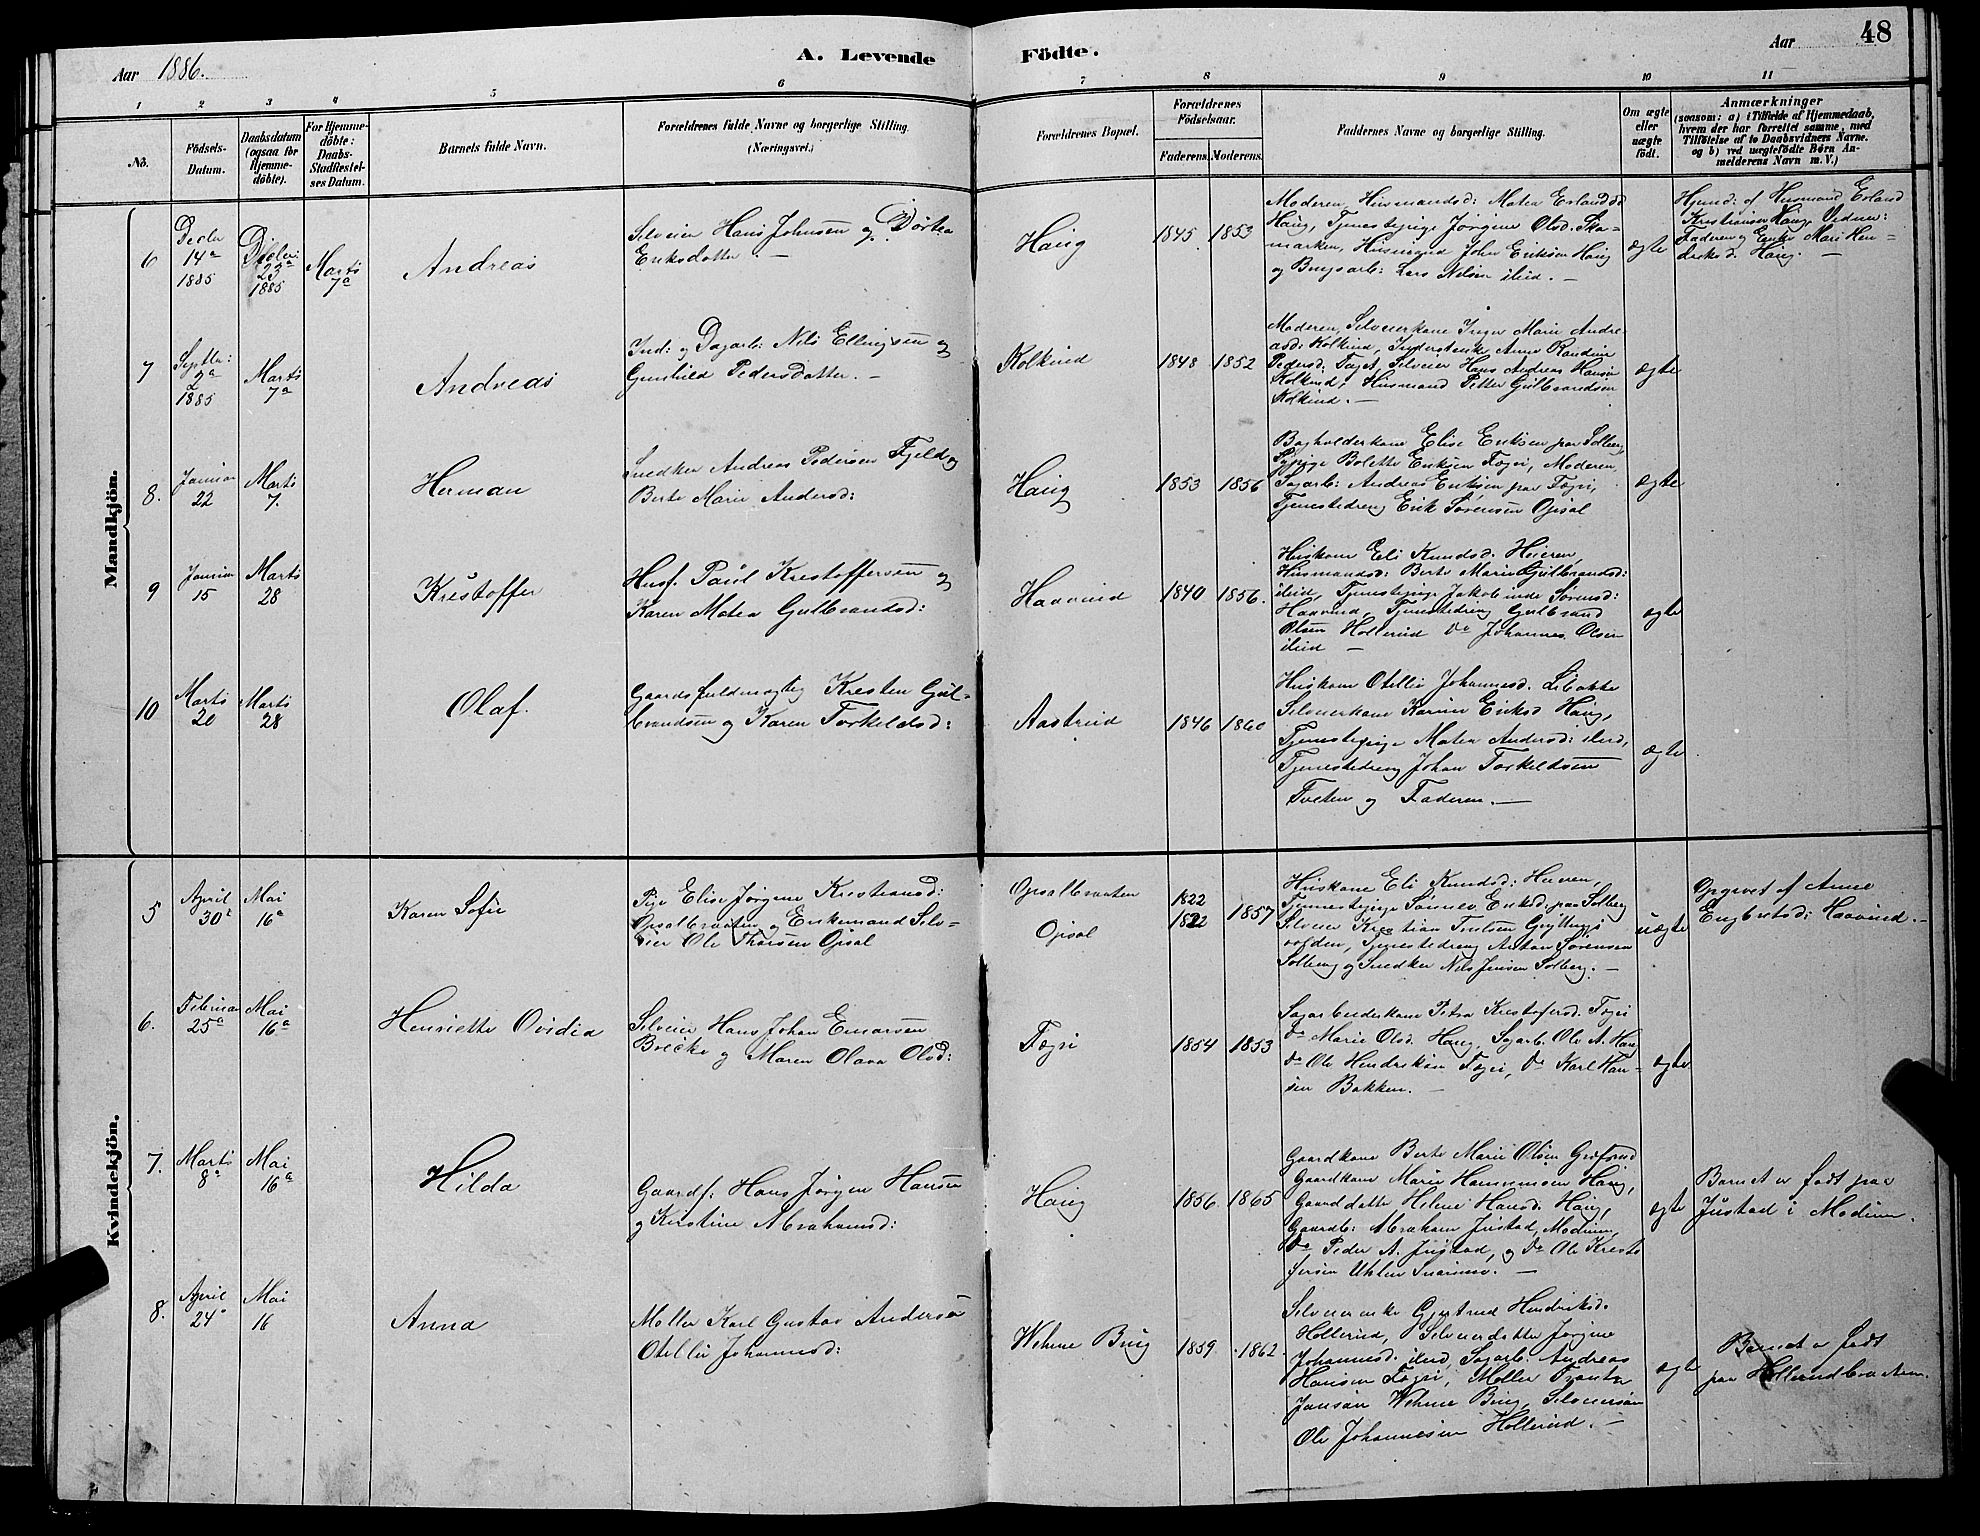 Aar 1886.
A. Levende
Födte.
Aar
48
1
2
3
4
5
6
7
8
9
10
11
No.
Födsels-
Datum.
Daabsdatum
(ogsaa for
Hjemme-
döbte).
For Hjemme-
döbte:
Daabs-
Stadfæstel-
ses Datum.
Barnets fulde Navn.
Forældrenes fulde Navne og borgerlige Stilling.
(Næringsvei.)
Forældrenes Bopæl.
Forældrenes
Födselsaar.
Faderens.
Moderens.
Faddernes Navne og borgerlige Stilling.
Om ægte
eller
uægte
født.
Anmærkninger
(saasom: a) i Tilfælde af Hjemmedaab,
hvem der har forrettet samme, med
Tilföielse af to Daabsvidners Navne.
og b) ved uægtefödte Börn An-
melderens Navn m. V.)
Mandkjön.
6
Decbr
14a
1885
Decbr
23a
1885
Marts
7a
Andreas
Selveier Hans Johnsen og Dortea
Eriksdatter. —
Haug
1845
1853
Moderen, Husmandsd: Matea Erlandsd
Haug, Tjenestepige Jørgine Olsd. Ska-
marken, Husmand John Eriksen Haug
og Brugsarb: Lars Nilsen ibid. —
ægte
Hjemd. af Husmand Erland
Kristiansen Haug. Vidner:
Faderen og Enke Mari Hen-
driksd. Haug. —
7
Septbr:
2a
1885
Marts
7a
Andreas
Ind: og Dagarb: Nils Ellingsen og
Gunhild Pedersdatter. —
Kolkind
1848
1852
Moderen, Selveierkone Inger Marie Andre-
asd: Kolkind, Inderstenke Anne Randine
Pedersd. Taget, Selveier Hans Andreas Hansen
Kolkind, Husmand Petter Gulbrandsen
Kolkind. —
ægte
8.
Januar
22
Marts
7.
Herman
Snedker Andreas Pedersen Fjeld og
Berte Marie Andersd:
Haug
1853
1856
Bogholderkone Elise Eriksen paa Solberg,
Sypige Bolette Eriksen Fægri, Moderen,
Sagarb: Andreas Eriksen paa Fægri,
Tjenestedreng Erik Sørensen Opsal
ægte
9
Januar
15
Marts
28
Kristoffer
Husf. Paul Kristoffersen og
Karen Matea Gulbrandsd:
Haavind
1840
1856.
Huskone Eli Knudsd. Heieren,
Husmandsd: Berte Marie Gulbrandsd:
ibid, Tjenestepige Jakobine Sørensd:
Haavind, Tjenestedreng Gulbrand
Olsen Hollerud Do Johannes Olsen
ibid —
ægte
10
Marts
20
Marts
28
Olaf.
Gaardsfuldmægtig Kresten Gul-
brandsen og Karen Torkeldsd:
Aastrud
1846
1860
Huskone Otellie Johannesd. Libakke
Selveierkone Karine Eriksd Haug,
Tjenestepige Matea Andersd: ibid,
Tjenestedreng Johan Torkeldsen
Tveten og Faderen. —
ægte
Kvindekjön.
5
April
30a
Mai
16a
Karen Sofie
Pige Elise Jørgine Kristiansd:
Opsalbraaten og Enkemand Selv-
eier Ole Thorsen Opsal
Opsalbraaten
Opsal
1822
1822
1857
Huskone Eli Knudsd: Heieren,
Tjenestepige Sønnev Eriksd: paa Solberg
Selveier Kristian Truelsen
Tjenestedreng Anton Sørensen
Solberg og Snedker Nils Jensen Solberg. —
uægte
Opgivet af Anne
Engbretsd: Haavind. —
6.
Februar
25a
Mai
16a
Henriette Ovidia
Selveier Hans Johan Einarsen
Brecke og Maren Olava Olsd:
Fægri
1854
1853
Sagarbeiderkone Petra Kristofersd. Fægri
Do Marie Olsd. Haug, Sagarb. Ole A. Haug
Do Ole Hendriksen Fægri, Do Karl Han-
sen Bakken. —
ægte
7.
Marts
8a
Mai
16a
Hilda
Gaardf. Hans Jørgen Hansen
og Kirstine Abrahamsd:
Haug
1856
1865
Gaardkone Berte Marie Olsen Grefsrud
Gaardkone Marie Hansen Haug,
Gaarddatter Helene Hansd. Haug,
Gaardb: Abraham Justad, Modum,
Do Peder A. Justad, og Do Ole Kristo-
fersen —
ægte
Barnet er født paa
Justad i Modum.
8.
April
24a
Mai
16
Anna
Møller Karl Gustav Andersen
Otellie Johannesd:
Wehme Brug
1859
1862
Selveierenke Gjertrud Hendriksd.
Hollerud, Selveierdatter Jørgine
Johannesd. ibid, Sagarb. Andreas
Hansen Fægri, Møller Frants
Jansen Wehme Brug, Selveiersøn
Ole Johannesen Hollerud. —
ægte
Barnet er født
paa Hollerudbraaten.